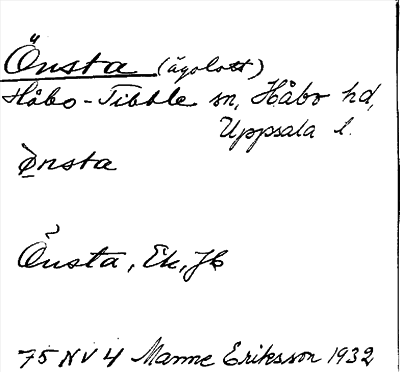 Önsta (ägolott)
Håbo-Tibble sn, Håbo hd,
Uppsala l.
Ønsta
Õnsta, Ek, Jb
75 NV 4 Manne Eriksson 1932